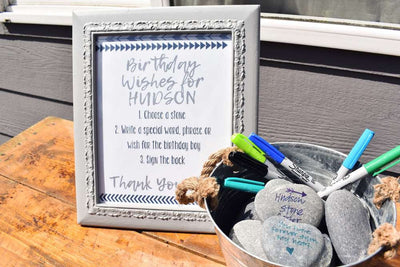 Birthday
Wishes for
HUDSON
1. Choose a stone
2. Write a special word, phrase or
wish for the birthday boy
3. Sign the back
Thank You
Hudson
Stone